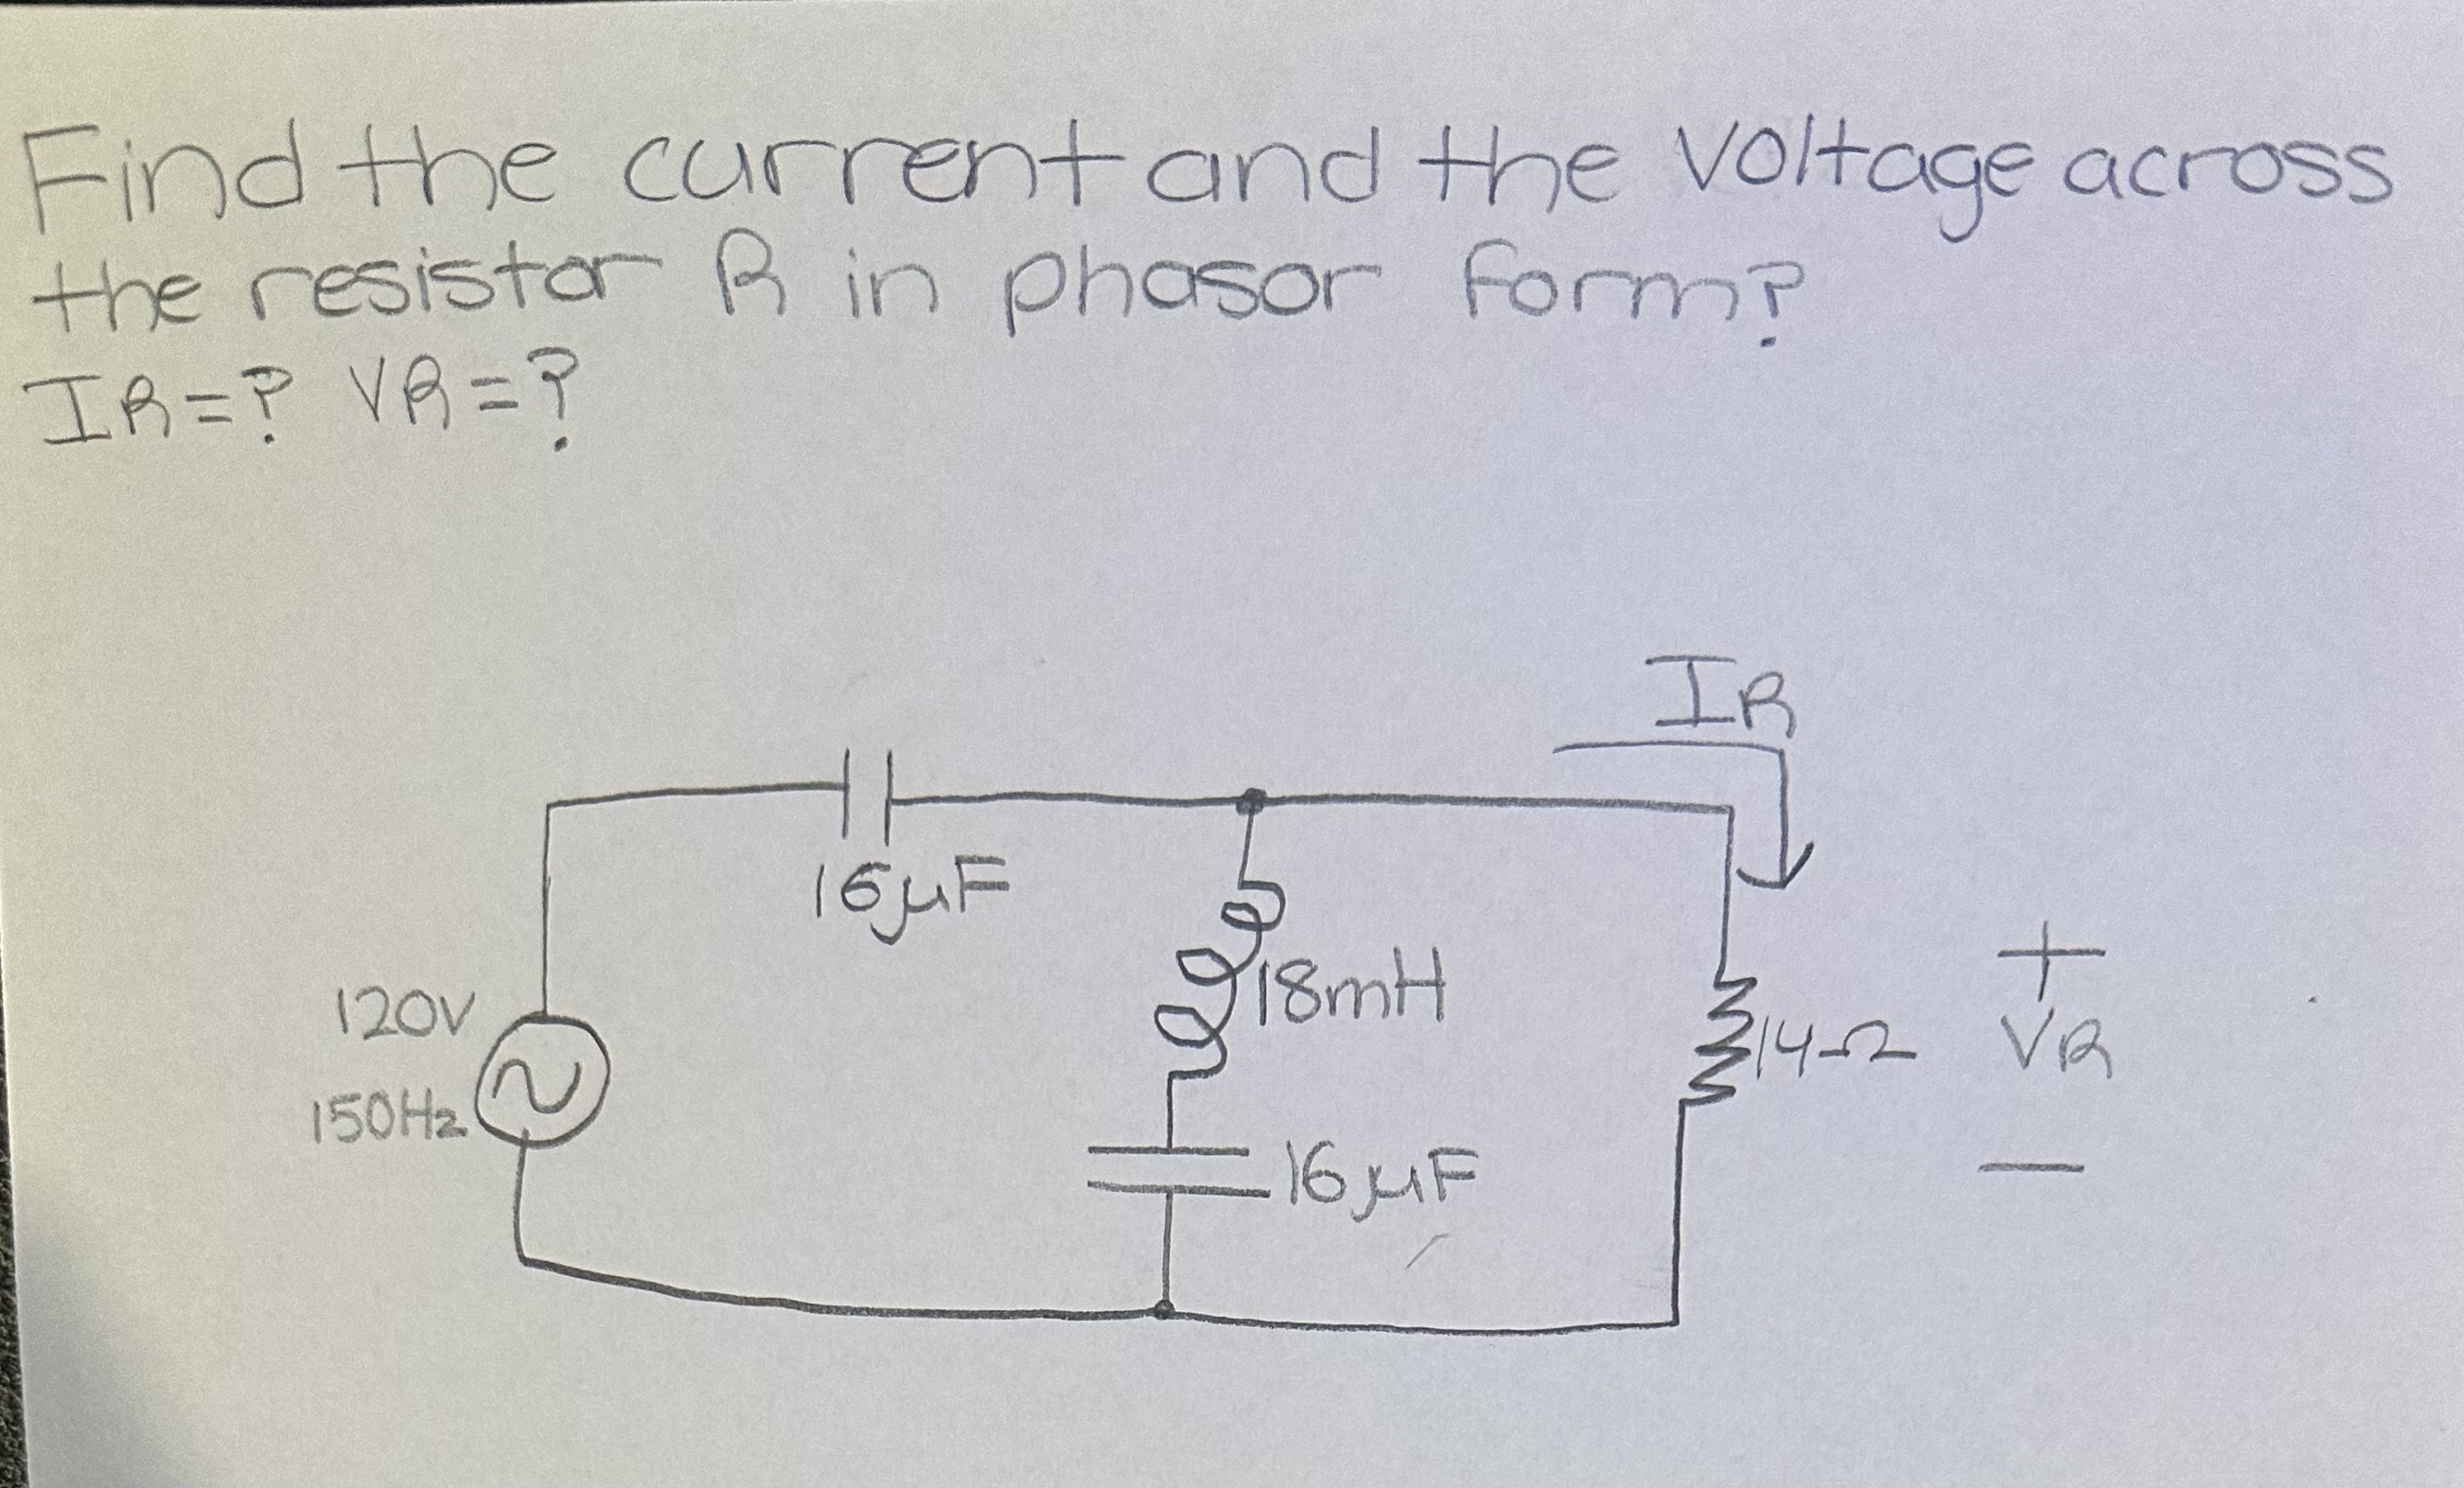 Find the current and the voltage across
the resistor R in phasor form?
IR=? VR=?
IR
16µF
18mH
120V
150Hz
14Ω
+
VR
-
16µF